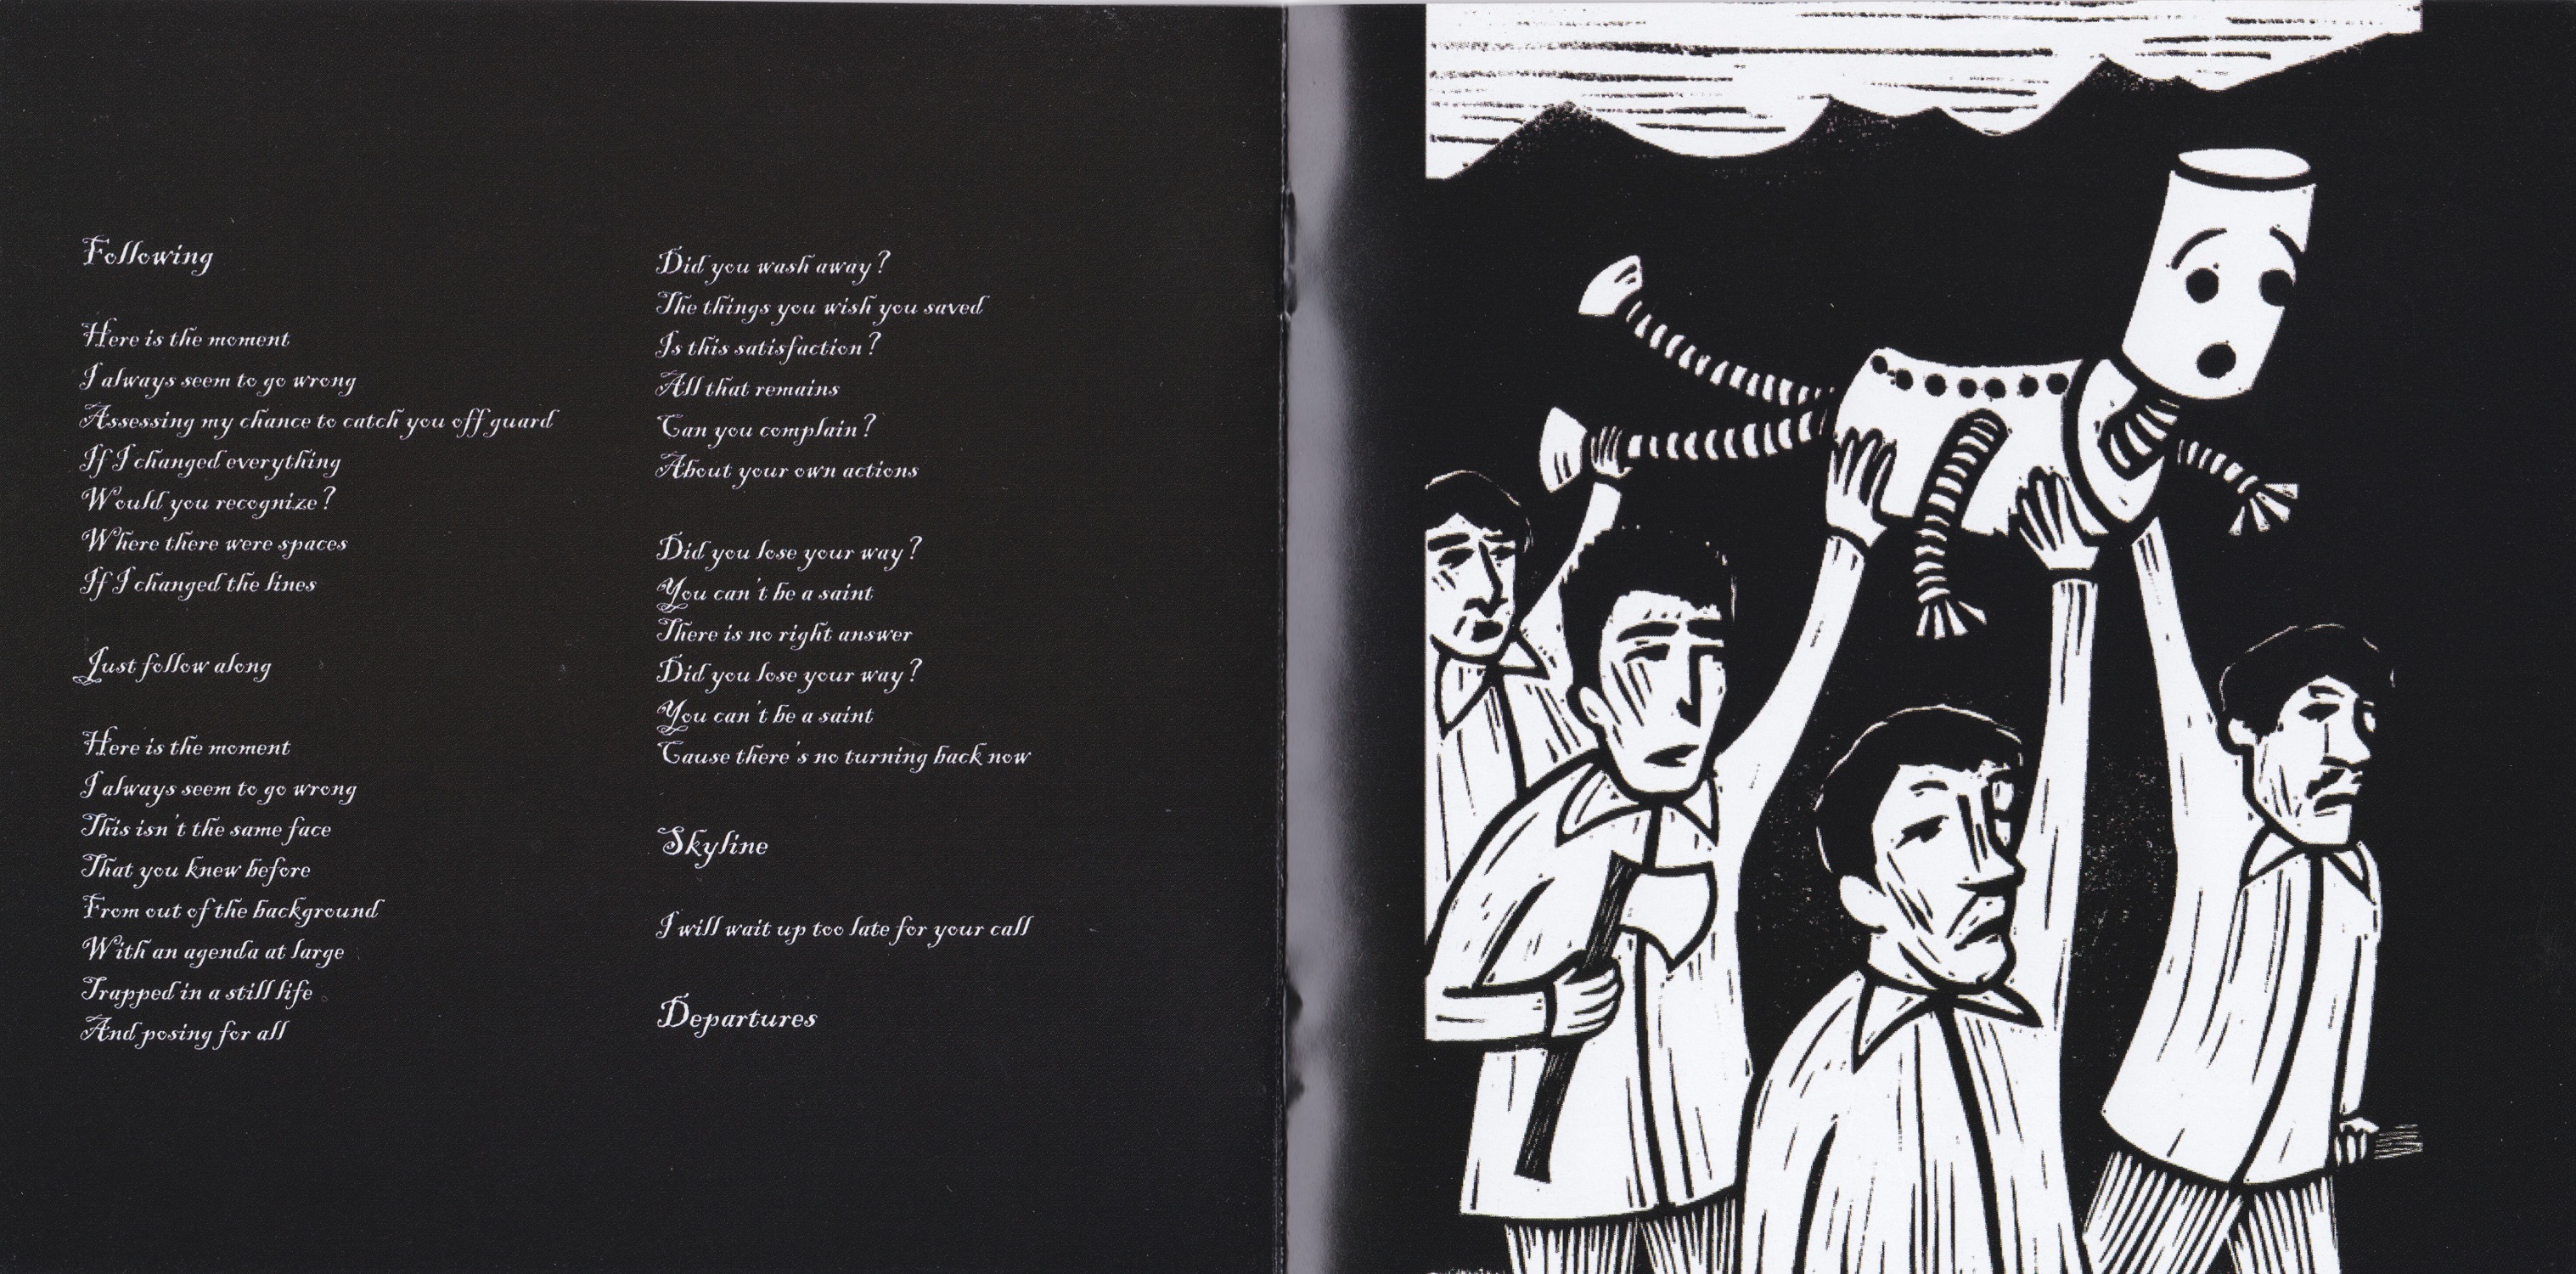 Following
Here is the moment
I always seem to go wrong
Assessing my chance to catch you off guard
If I changed everything
Would you recognize?
Where there were spaces
If I changed the lines
Just follow along
Here is the moment
I always seem to go wrong
This isn't the same face
That you knew before
From out of the background
With an agenda at large
Trapped in a still life
And posing for all
Did you wash away?
The things you wish you saved
Is this satisfaction?
All that remains
Can you complain?
About your own actions
Did you lose your way?
You can't be a saint
There is no right answer
Did you lose your way?
You can't be a saint
Cause there's no turning back now
Skyline
I will wait up too late for your call
Departures